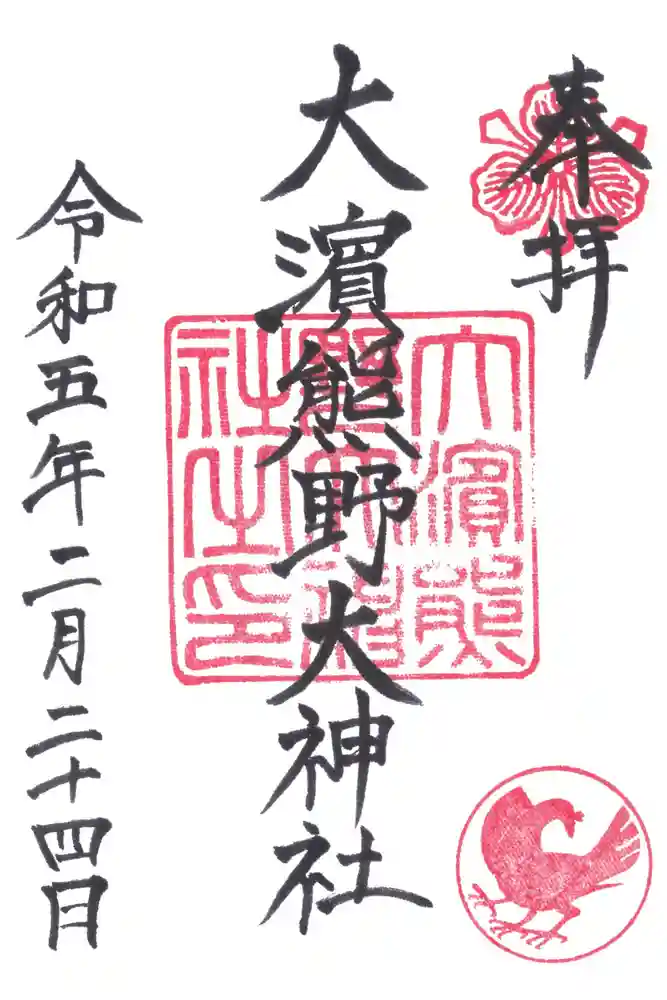 奉拝
大濱熊野大神社
大濱熊野大神社之印
令和五年二月二十四日